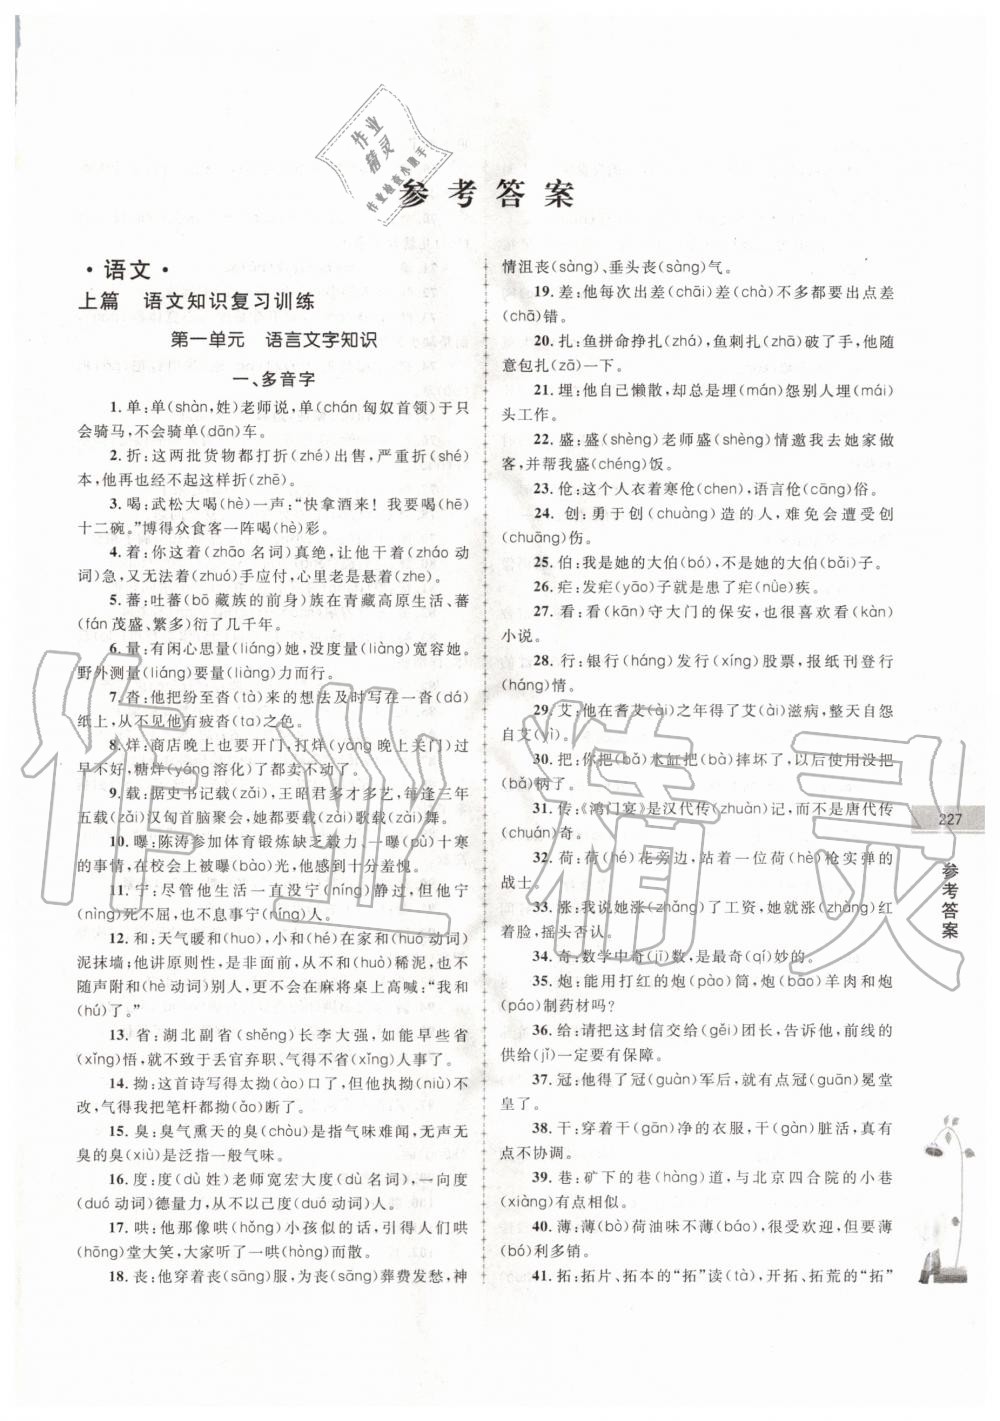 作业
精灵
作业检查小助手
参考答案
·语文·
上篇 语文知识复习训练
第一单元 语言文字知识
一、多音字
1. 单:单(shàn,姓)老师说,单(chán 匈奴首领)于只
会骑马,不会骑单(dān)车。
2. 折:这两批货物都打折(zhé)出售,严重折(shé)
本,他再也经不起这样折(zhē)。
3. 喝:武松大喝(hè)一声:“快拿酒来!我要喝(hē)
十二碗。”博得众食客一阵喝(hè)彩。
4. 着:你这着(zhāo 名词)真绝,让他干着(zháo 动
词)急,又无法着(zhuó)手应付,心里老是悬着(zhe)。
5. 蕃:吐蕃(bō 藏族的前身)族在青藏高原生活、蕃
(fán 茂盛、繁多)衍了几千年。
6. 量:有闲心思量(liáng)她,没度量(liàng)宽容她。
野外测量(liáng)要量(liàng)力而行。
7. 沓:他把纷至沓(tà)来的想法及时写在一沓(dá)
纸上,从不见他有疲沓(ta)之色。
8. 烊:商店晚上也要开门,打烊(yàng 晚上关门)过
早不好,糖烊(yáng 溶化)了都卖不动了。
9. 载:据史书记载(zǎi),王昭君多才多艺,每逢三年
五载(zǎi)汉匈首脑聚会,她都要载(zài)歌载(zài)舞。
10. 曝:陈涛参加体育锻炼缺乏毅力、一曝(pù)十寒
的事情,在校会上被曝(bào)光,他感到十分羞愧。
11. 宁:尽管他生活一直没宁(níng)静过,但他宁
(nìng)死不屈,也不息事宁(níng)人。
12. 和:天气暖和(huo),小和(hé)在家和(huó 动词)
泥抹墙;他讲原则性,是非面前从不和(huò)稀泥,也不
随声附和(hè 动词)别人,更不会在麻将桌上高喊:“我和
(hú)了。”
13. 省:湖北副省(shěng)长李大强,如能早些省
(xǐng)悟,就不致于丢官弃职、气得不省(xǐng)人事了。
14. 拗:这首诗写得太拗(ào)口了,但他执拗(niù)不
改,气得我把笔杆都拗(ǎo)断了。
15. 臭:臭气熏天的臭(chòu)是指气味难闻,无声无
臭的臭(xiù)是泛指一般气味。
16. 度:度(dù 姓)老师宽宏大度(dù 名词),一向度
(duó 动词)德量力,从不以己度(duó 动词)人。
17. 哄:他那像哄(hǒng)小孩似的话,引得人们哄
(hōng)堂大笑,大家听了一哄(hòng)而散。
18. 丧:他穿着丧(sāng)服,为丧(sāng)葬费发愁,神
情沮丧(sàng)、垂头丧(sàng)气。
19. 差:他每次出差(chāi)差(chà)不多都要出点差
(chā)错。
20. 扎:鱼拼命挣扎(zhá),鱼刺扎(zhā)破了手,他随
意包扎(zā)一下。
21. 埋:他自己懒散,却总是埋(mán)怨别人埋(mái)
头工作。
22. 盛:盛(shèng)老师盛(shèng)情邀我去她家做
客,并帮我盛(chéng)饭。
23. 伧:这个人衣着寒伧(chen),语言伧(cāng)俗。
24. 创:勇于创(chuàng)造的人,难免会遭受创
(chuāng)伤。
25. 伯:我是她的大伯(bó),不是她的大伯(bǎi)子。
26. 疟:发疟(yāo)子就是患了疟(nüè)疾。
27. 看:看(kān)守大门的保安,也很喜欢看(kàn)
小说。
28. 行:银行(háng)发行(xíng)股票,报纸刊登行
(háng)情。
29. 艾:他在耆艾(ài)之年得了艾(ài)滋病,整天自怨
自艾(yì)。
30. 把:你把(bǎ)水缸把(bà)摔坏了,以后使用没把
(bà)柄了。
31. 传:《鸿门宴》是汉代传(zhuàn)记,而不是唐代传
(chuán)奇。
32. 荷:荷(hé)花旁边,站着一位荷(hè)枪实弹的
战士。
33. 涨:我说她涨(zhǎng)了工资,她就涨(zhàng)红
着脸,摇头否认。
34. 奇:数学中奇(jī)数,是最奇(qí)妙的。
35. 炮:能用打红的炮(pào)筒,炮(bāo)羊肉和炮
(páo)制药材吗?
36. 给:请把这封信交给(gěi)团长,告诉他,前线的
供给(jǐ)一定要有保障。
37. 冠:他得了冠(guàn)军后,就有点冠(guān)冕堂
皇了。
38. 干:穿着干(gān)净的衣服,干(gàn)脏活,真有
点不协调。
39. 巷:矿下的巷(hàng)道,与北京四合院的小巷
(xiàng)有点相似。
40. 薄:薄(bò)荷油味不薄(báo),很受欢迎,但要薄
(bó)利多销。
41. 拓:拓片、拓本的“拓”读(tà),开拓、拓荒的“拓”
227
参考答案
作业精灵